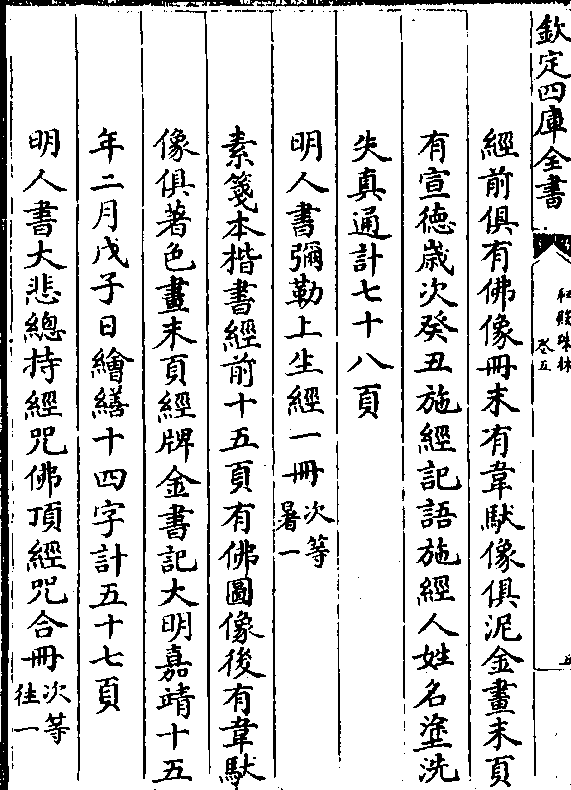 欽定四庫全書
秘殿珠林
卷五
五
經前俱有佛像冊末有韋馱像俱泥金畫末頁
有宣徳歲次癸丑施經記語施經人姓名塗洗
失真通計七十八頁
明人書彌勒上生經一冊次等暑一
素箋本楷書經前十五頁有佛圖像後有韋馱
像俱著色畫末頁經牌金書記大明嘉靖十五
年二月戊子日繪繕十四字計五十七頁
明人書大悲總持經咒佛頂經咒合冊次等往一